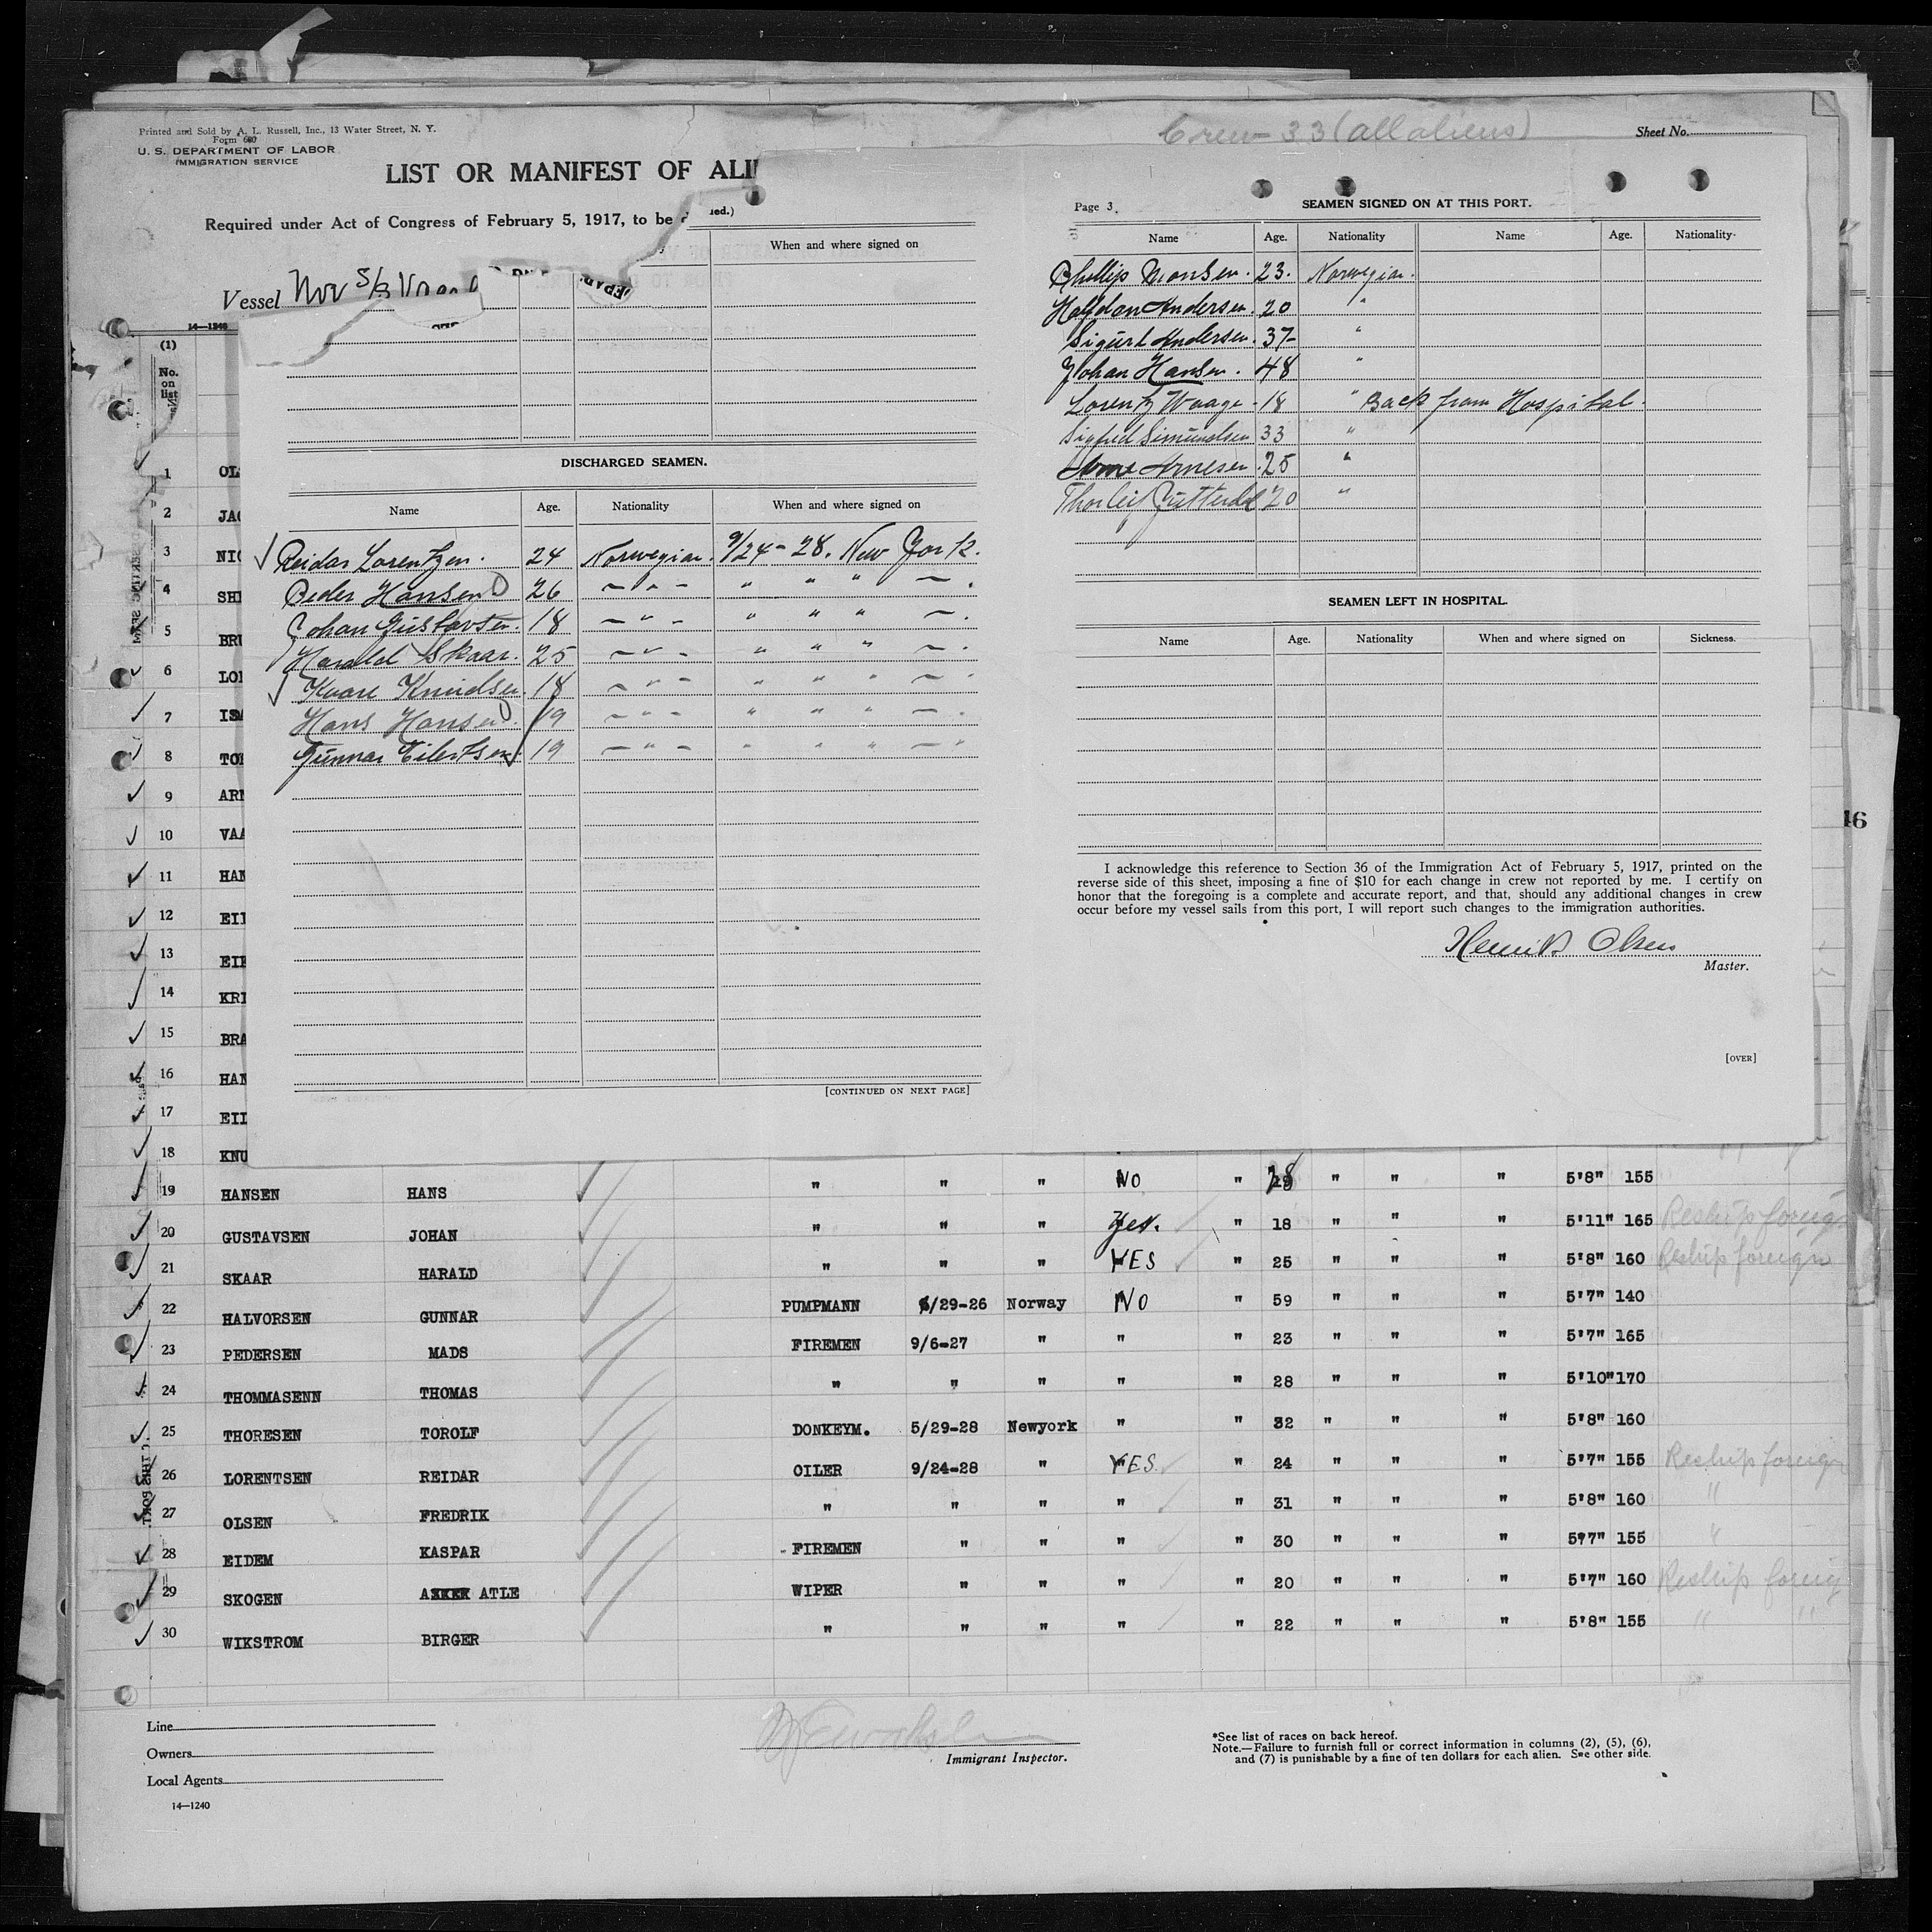 Printed and Sold by A. L. Russell, Inc., 13 Water Street, N. Y.
Form 680
U. S. DEPARTMENT OF LABOR
IMMIGRATION SERVICE
Crew 33 (all aliens)
Sheet No.
LIST OR MANIFEST OF ALI
Required under Act of Congress of February 5, 1917, to be d
Vessel Nor S/S
14—1240
(1)
No. on list
ued.)
When and where signed on
DISCHARGED SEAMEN.
Name Age. Nationality When and where signed on
Reidar Lorentzen. 24 Norwegian. 9/24-28. New York.
Peder Hansen 26 — " — " " " — .
Johan Gustavsen. 18 — " — " " " — .
Harald Skaar. 25 — " — " " " — .
Kaare Knudsen. 18 — " — " " " — .
Hans Hansen. 19 — " — " " " — .
Gunnar Eilertsen 19 — " — " " " — "
[CONTINUED ON NEXT PAGE]
Page 3.
SEAMEN SIGNED ON AT THIS PORT.
Name Age. Nationality Name Age. Nationality
Phillip Monsen. 23. Norwegian.
Halfdan Andersen. 20 "
Sigurt Andersen. 37- "
Johan Hansen. 48 "
Lorentz Waage. 18 " Back from Hospital.
Sigfred Simundsen 33 "
Arne Arnesen. 25 "
Thorleif 20 "
SEAMEN LEFT IN HOSPITAL.
Name Age. Nationality When and where signed on Sickness.
I acknowledge this reference to Section 36 of the Immigration Act of February 5, 1917, printed on the
reverse side of this sheet, imposing a fine of $10 for each change in crew not reported by me. I certify on
honor that the foregoing is a complete and accurate report, and that, should any additional changes in crew
occur before my vessel sails from this port, I will report such changes to the immigration authorities.
Henrik Olsen
Master.
[OVER]
1 OL
2 JA
3 NI
4 SH
5 BR
6 LO
7 IS
8 TO
9 AR
10 VA
11 HA
12 EI
13 EI
14 KR
15 BRA
16 HA
17 EI
18 KNU
19 HANSEN HANS " " " NO " " " " 5'8" 155
20 GUSTAVSEN JOHAN " " " Yes. " 18 " " " 5'11" 165 Reship foreign
21 SKAAR HARALD " " " YES " 25 " " " 5'8" 160 Reship foreign
22 HALVORSEN GUNNAR PUMPMANN 6/29-26 Norway NO " 59 " " " 5'7" 140
23 PEDERSEN MADS FIREMEN 9/6-27 " " " 23 " " " 5'7" 165
24 THOMMASENN THOMAS " " " " " 28 " " " 5'10" 170
25 THORESEN TOROLF DONKEYM. 5/29-28 Newyork " " 32 " " " 5'8" 160
26 LORENTSEN REIDAR OILER 9/24-28 " YES " 24 " " " 5'7" 155 Reship foreign
27 OLSEN FREDRIK " " " " " 31 " " " 5'8" 160 "
28 EIDEM KASPAR FIREMEN " " " " 30 " " " 5'7" 155 "
29 SKOGEN ATLE WIPER " " " " 20 " " " 5'7" 160 Reship foreig
30 WIKSTROM BIRGER " " " " " 22 " " " 5'8" 155 " "
Line
Owners
Local Agents
14—1240
Immigrant Inspector.
*See list of races on back hereof.
Note.—Failure to furnish full or correct information in columns (2), (5), (6),
and (7) is punishable by a fine of ten dollars for each alien. See other side.
46